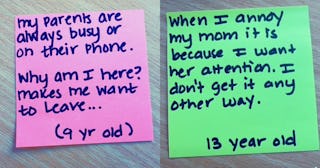 my parents are
always busy or
on their phone.
Why am I here?
makes me want
to leave...
(9 yr old)
When I annoy
my mom it is
because I want
her attention. I
don't get it any
other way.
13 year old